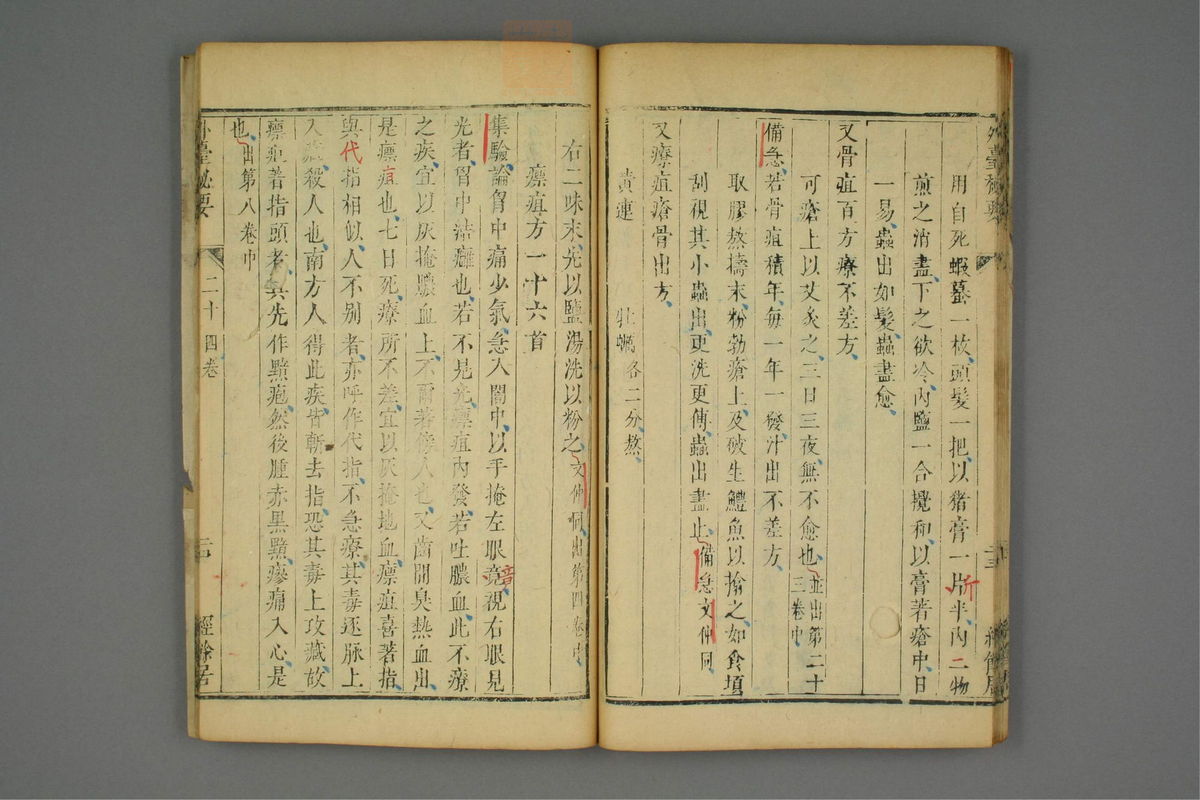 用自死蝦蟇一枚頭髮一把以猪膏一片斤半內二物
煎之消盡下之欲冷內鹽一合攪和以膏著瘡中日
一易蟲出如髮蟲盡愈
又骨疽百方療不差方
可瘡上以艾灸之三日三夜無不愈也並出第二十三卷中
備急若骨疽積年每一年一發汁出不差方
取膠熬擣末粉勃瘡上及破生鱧魚以搶之如食頃
刮視其小蟲出更洗更傅蟲出盡止備急文仲同
又療疽瘡骨出方
黃連 牡蠣各二分熬
右二味末先以鹽湯洗以粉之文仲同出第四卷中
瘭疽方一十六首
集驗論胷中痛少氣急入闇中以手掩左眼竟音視右眼見
光者胷中結癰也若不見光瘭疽內發若吐膿血此不療
之疾宜以灰掩膿血上不爾著傍人也又齒間臭熱血出
是瘭疽也七日死療所不差宜以灰掩地血瘭疽喜著指
與代指相似人不別者亦呼作代指不急療其毒逐脉上
入藏殺人也南方人得此疾皆斬去指恐其毒上攻藏故
瘭疽著指頭者其先作黯疱然後腫赤黑黯瘮痛入心是
也出第八卷中
外臺祕要 二十四卷 經餘居